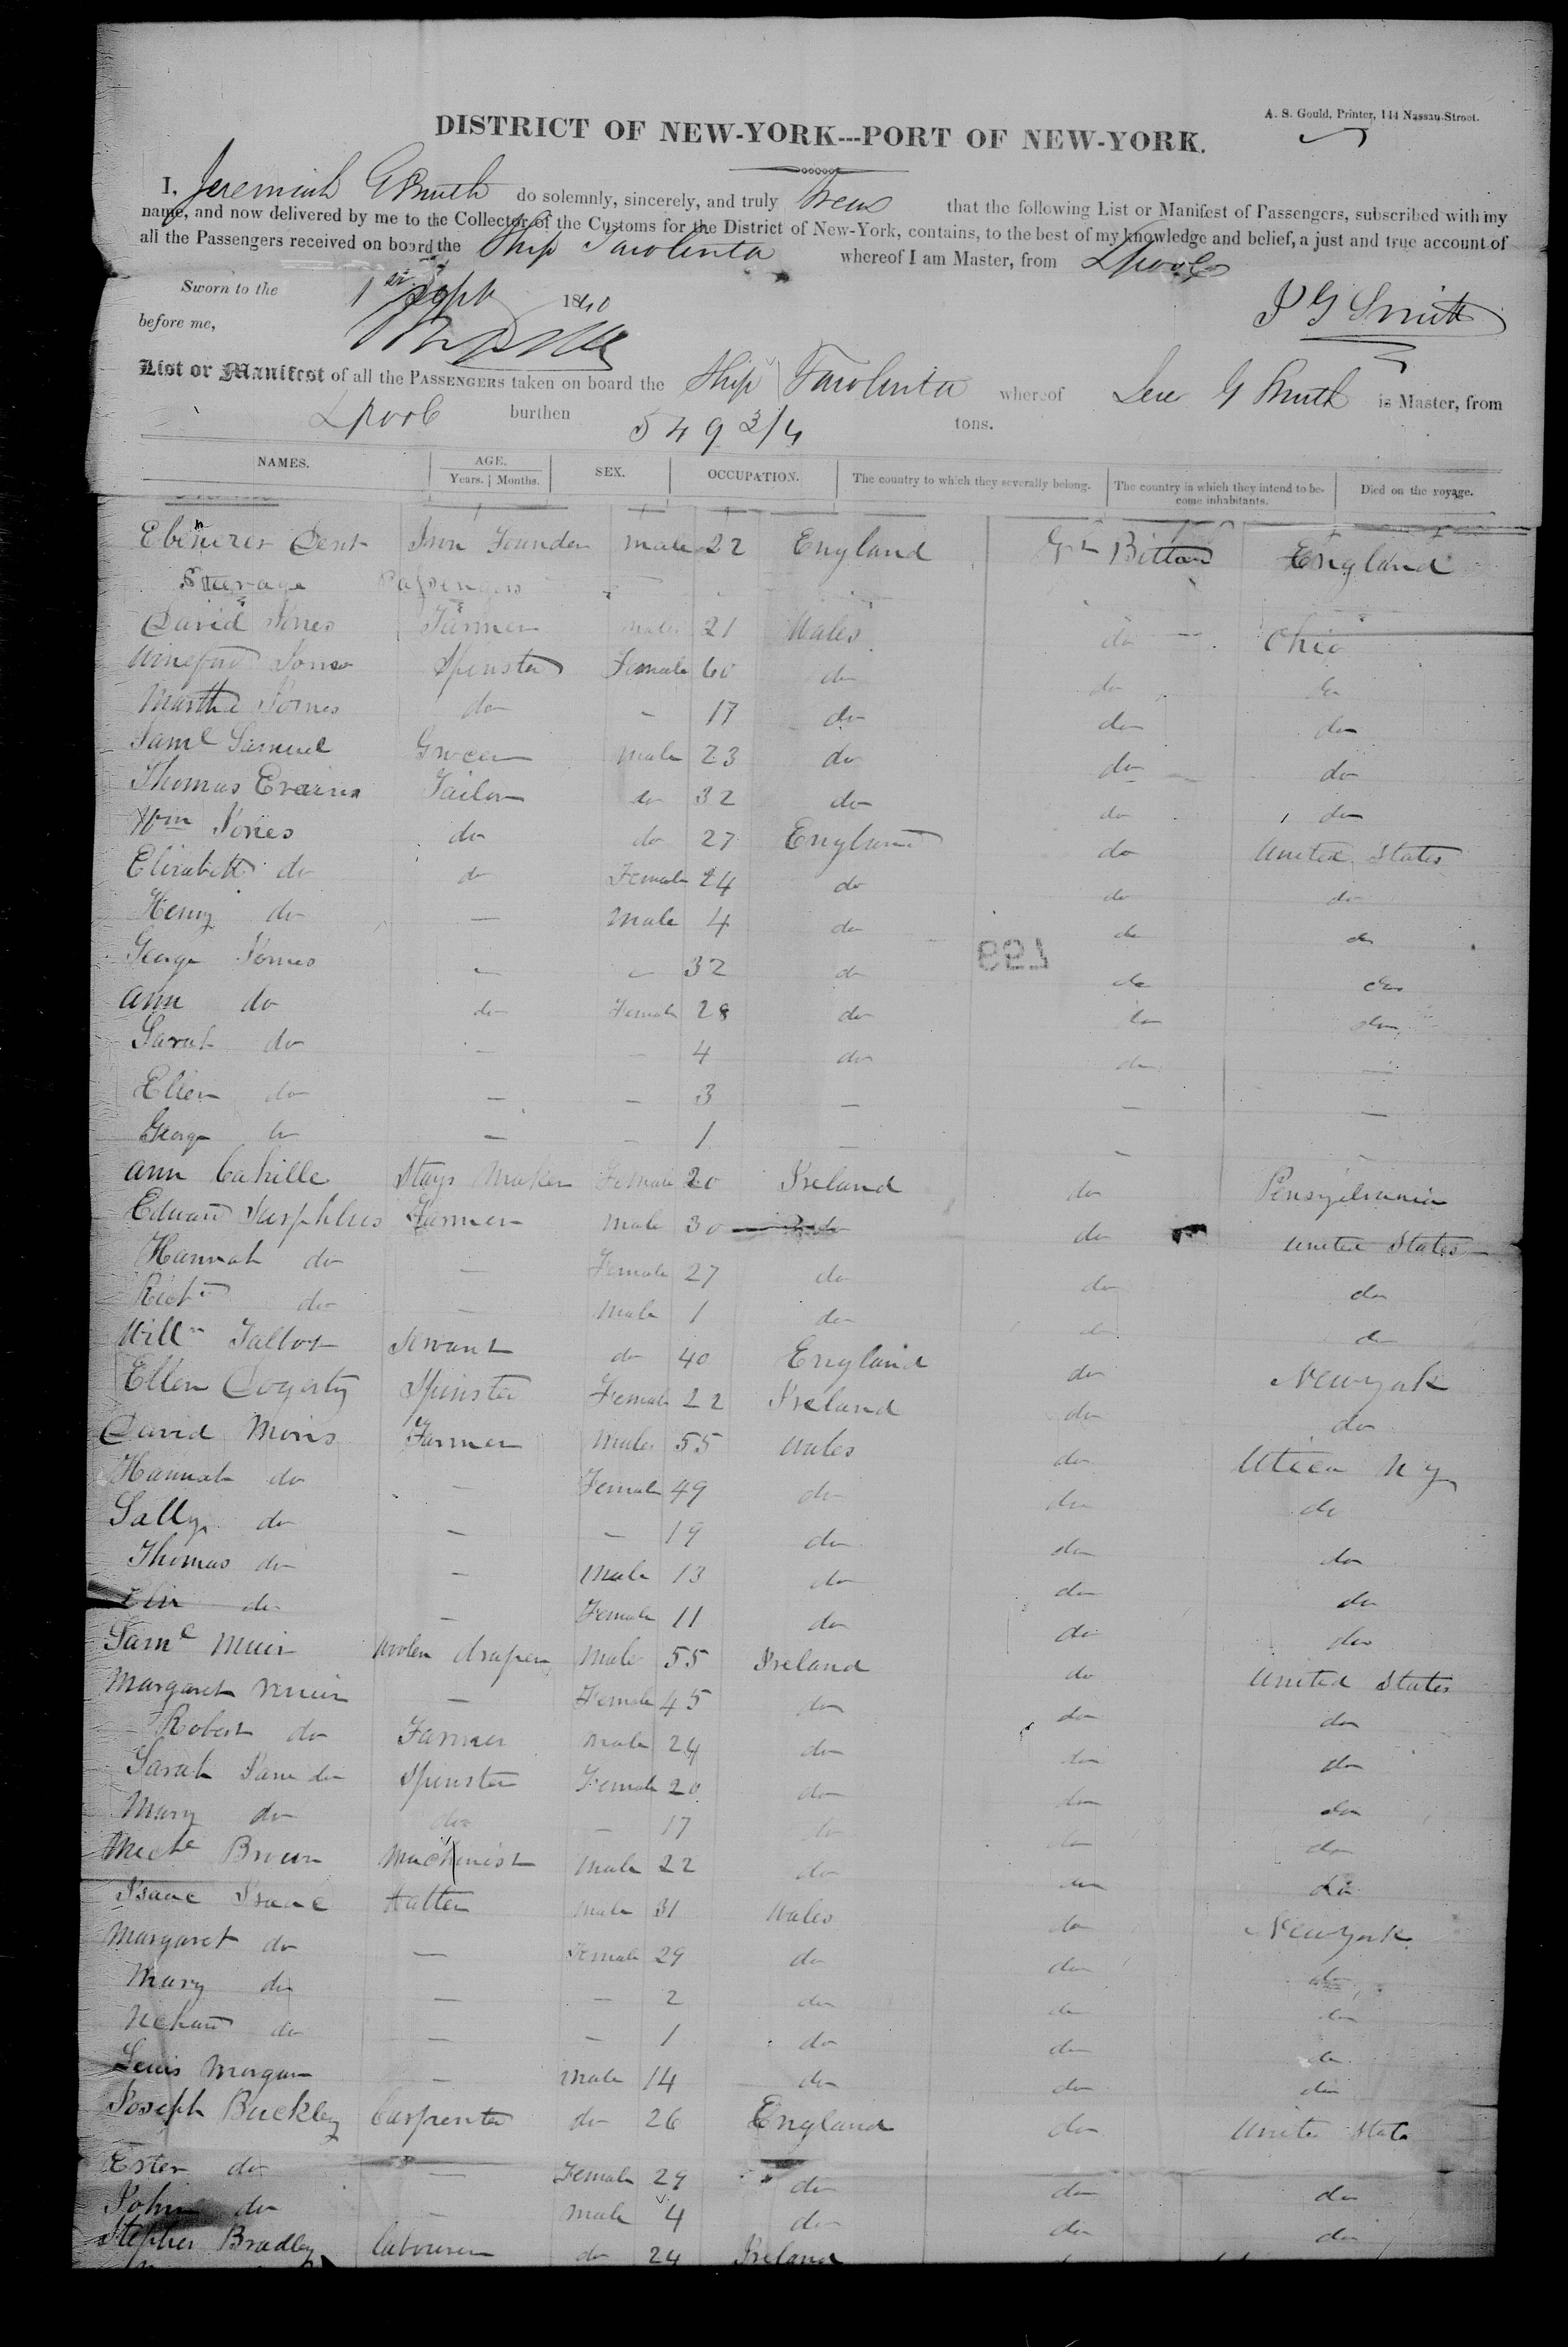 A. S. Gould, Printer, 144 Nassau-Street.
DISTRICT OF NEW-YORK---PORT OF NEW-YORK.
I, Jeremiah G Smith do solemnly, sincerely, and truly Swear that the following List or Manifest of Passengers, subscribed with my
name, and now delivered by me to the Collector of the Customs for the District of New-York, contains, to the best of my knowledge and belief, a just and true account of
all the Passengers received on board the Ship Tarolinta whereof I am Master, from Lpool
Sworn to the 1st Sept 1840
before me, J G Smith
List or Manifest of all the PASSENGERS taken on board the Ship Tarolinta whereof Jere G Smith is Master, from
Lpool burthen 549 3/4 tons.
NAMES. AGE. Years. Months. SEX. OCCUPATION. The country to which they severally belong. The country in which they intend to become inhabitants. Died on the voyage.
Ebenezer Dent Iron Founder male 22 England Gt Bittan England
Steerage Passengers
David Jones Farmer male 21 Wales do Ohio
Jones Spinster Female 60 do do do
Martha Jones do - 17 do do do
Saml Samuel Grocer male 23 do do do
Thomas Evains Tailor do 32 do do do
Wm Jones do do 27 England do United States
Elizabeth do do Female 24 do do do
Henry do — Male 4 do do do
George Jones - - 32 do do do
Ann do do Female 28 do do do
Sarah do - - 4 do do —
Ellen do - - 3 - - —
George do - - 1 - - -
Ann Cahille Stays Maker Female 20 Ireland do Pensyelvania
Edward Farmer male 30 do do United States
Hannah do - Female 27 do do do
Richd do - Male 1 do do do
Willm Talbot Servant do 40 England do New york
Ellen Dogerty Spinster Female 22 Ireland do do
David Moris Farmer Male 55 Wales do Utica N y
Hannah do - Female 49 do do do
Sally do - - 19 do do do
Thomas do - Male 13 do do do
do - Female 11 do do do
Saml Muir Wolen draper Male 55 Ireland do United States
Margaret Muir - Female 45 do do do
Robert do Farmer Male 24 do do do
Sarah Jane do Spinster Female 20 do do do
Mary do do - 17 do do do
Brown Machinist Male 22 do do do
Isaac Isaac Hatter Male 31 Wales do New york
Margaret do - Female 29 do do do
Mary do - - 2 do do do
do - - 1 do do do
Lewis Morgan - Male 14 do do do
Joseph Buckley Carpenter do 26 England do United State
Ester do - Female 29 do do do
John do - Male 4 do do do
Stephen Bradley labourer do 24 Ireland